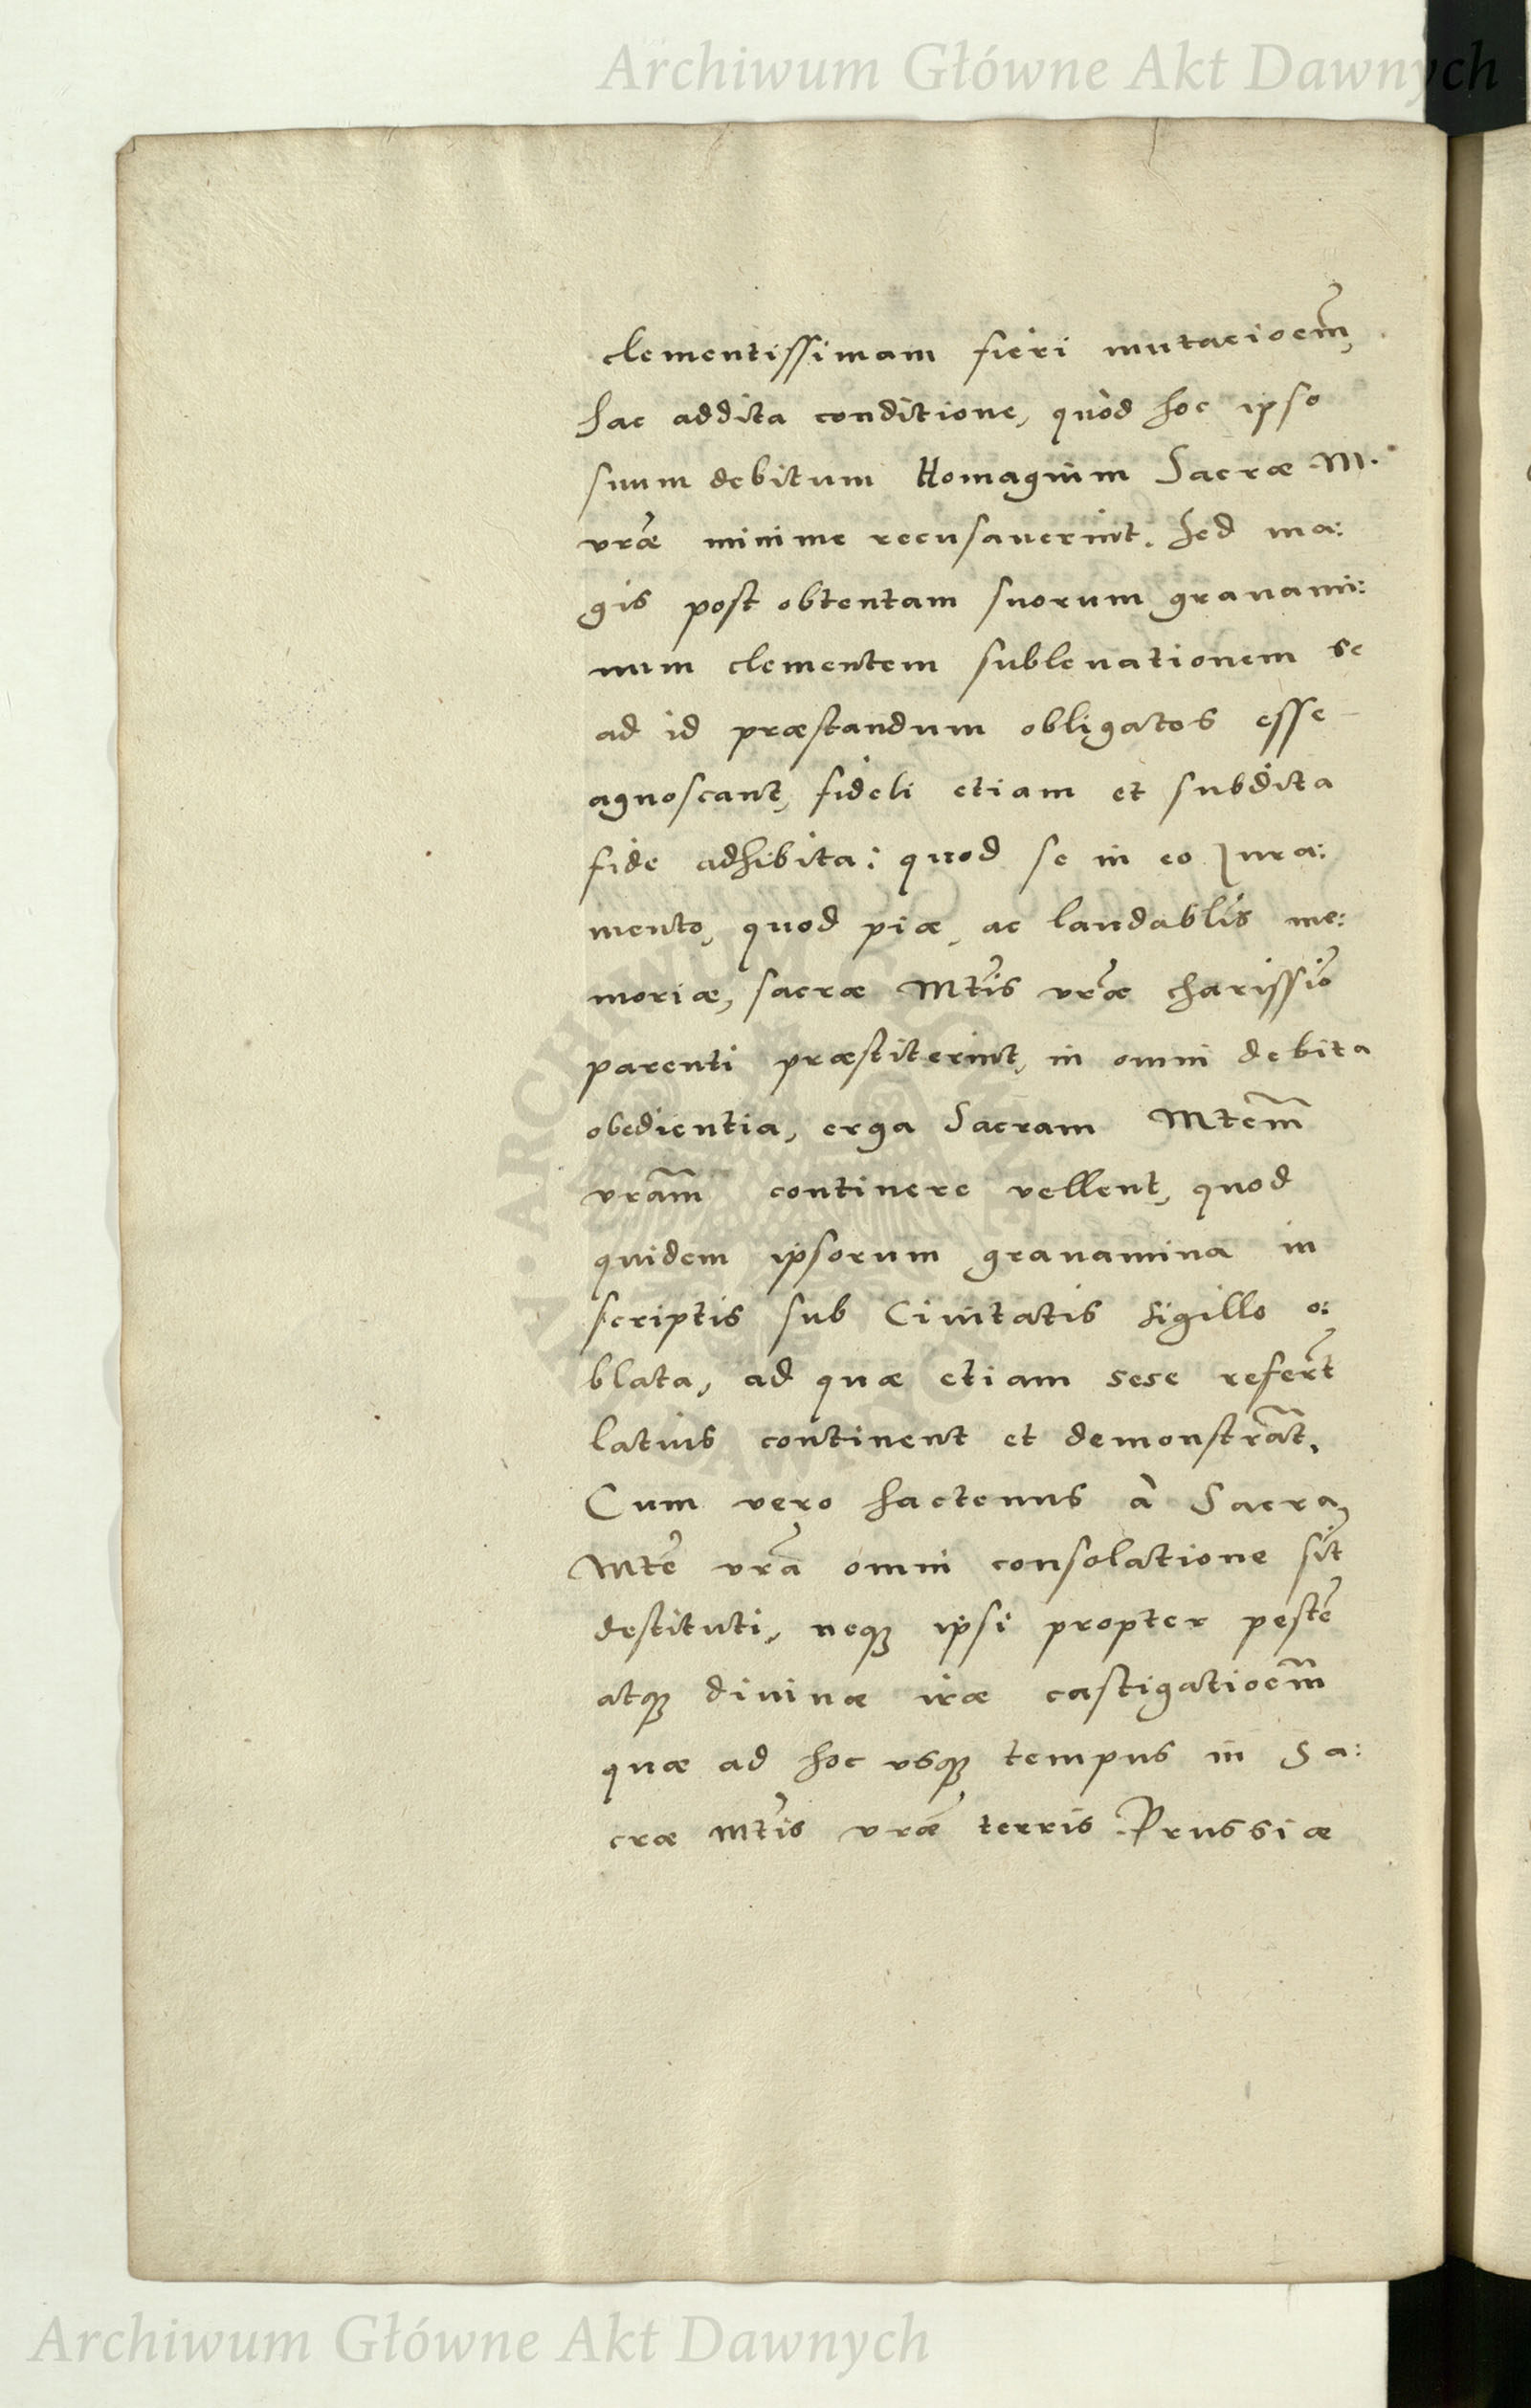 Archiwum Główne Akt Dawnych
clementissimam fieri mutacioem̃,
hac addita conditione, quòd hoc ipso
suum debitum Homagium Sacræ M.
vræ̃ minime recusauerint. Sed ma:
gis post obtentam suorum grauami:
num clementem subleuationem se
ad id præstandum obligatos esse
agnoscant, fideli etiam et subdita
fide adhibita: quod se in eo Jura:
mento, quod piæ, ac laudabl̃is me:
moriæ, sacræ Mtis̃ vræ̃ charissiõ
parenti præstiterint, in omni debita
obedientia, erga Sacram Mtem̃
vram̃ continere vellent, quod
quidem ipsorum grauamina in
scriptis sub Ciuitatis sigillo o:
blata, ad quæ etiam sese refer̃t
latius continent et demonstrãt.
Cum vero hactenus à Sacra
Mtẽ vrã omni consolatione sĩt
destituti, neqȝ ipsi propter pestẽ
atqȝ diuinæ iræ castigatioem̃
quæ ad hoc vsqȝ tempus in Sa:
cræ Mtis̃ vræ̃ terris Prussiæ
Archiwum Główne Akt Dawnych